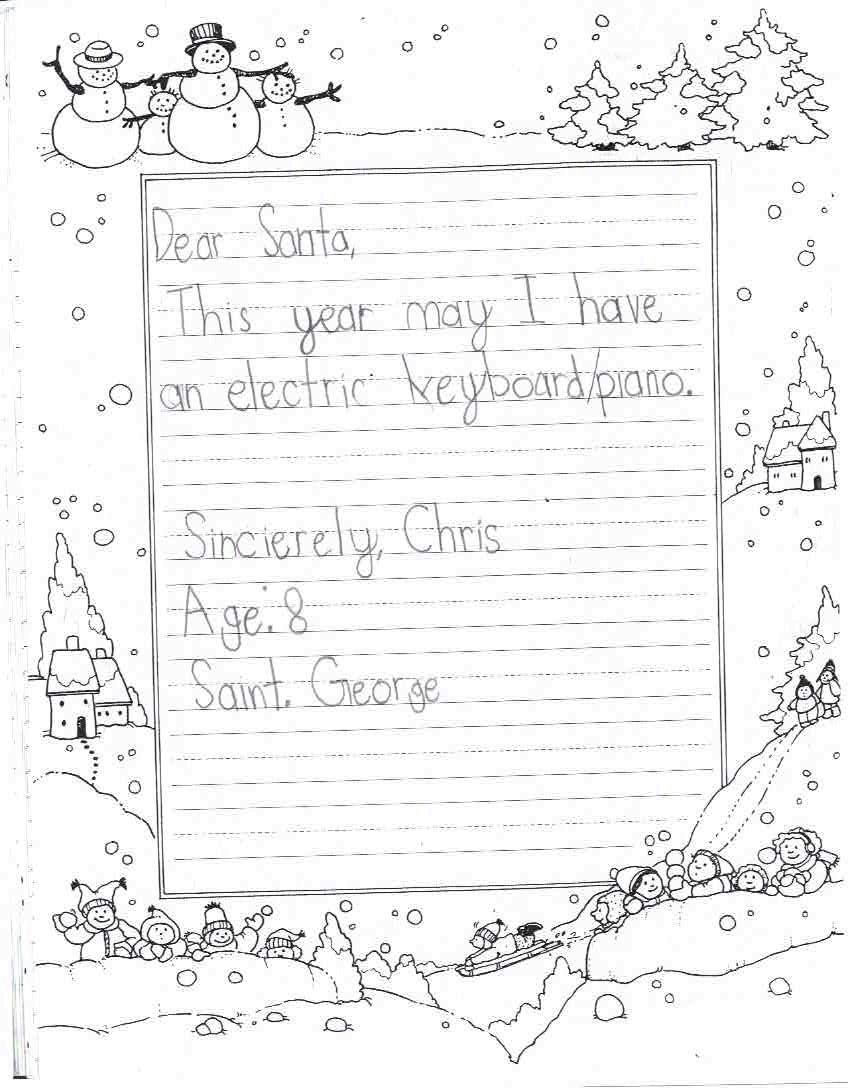 Dear Santa,
This year may I have
an electric keyboard/piano.
Sincierely, Chris
Age: 8
Saint. George